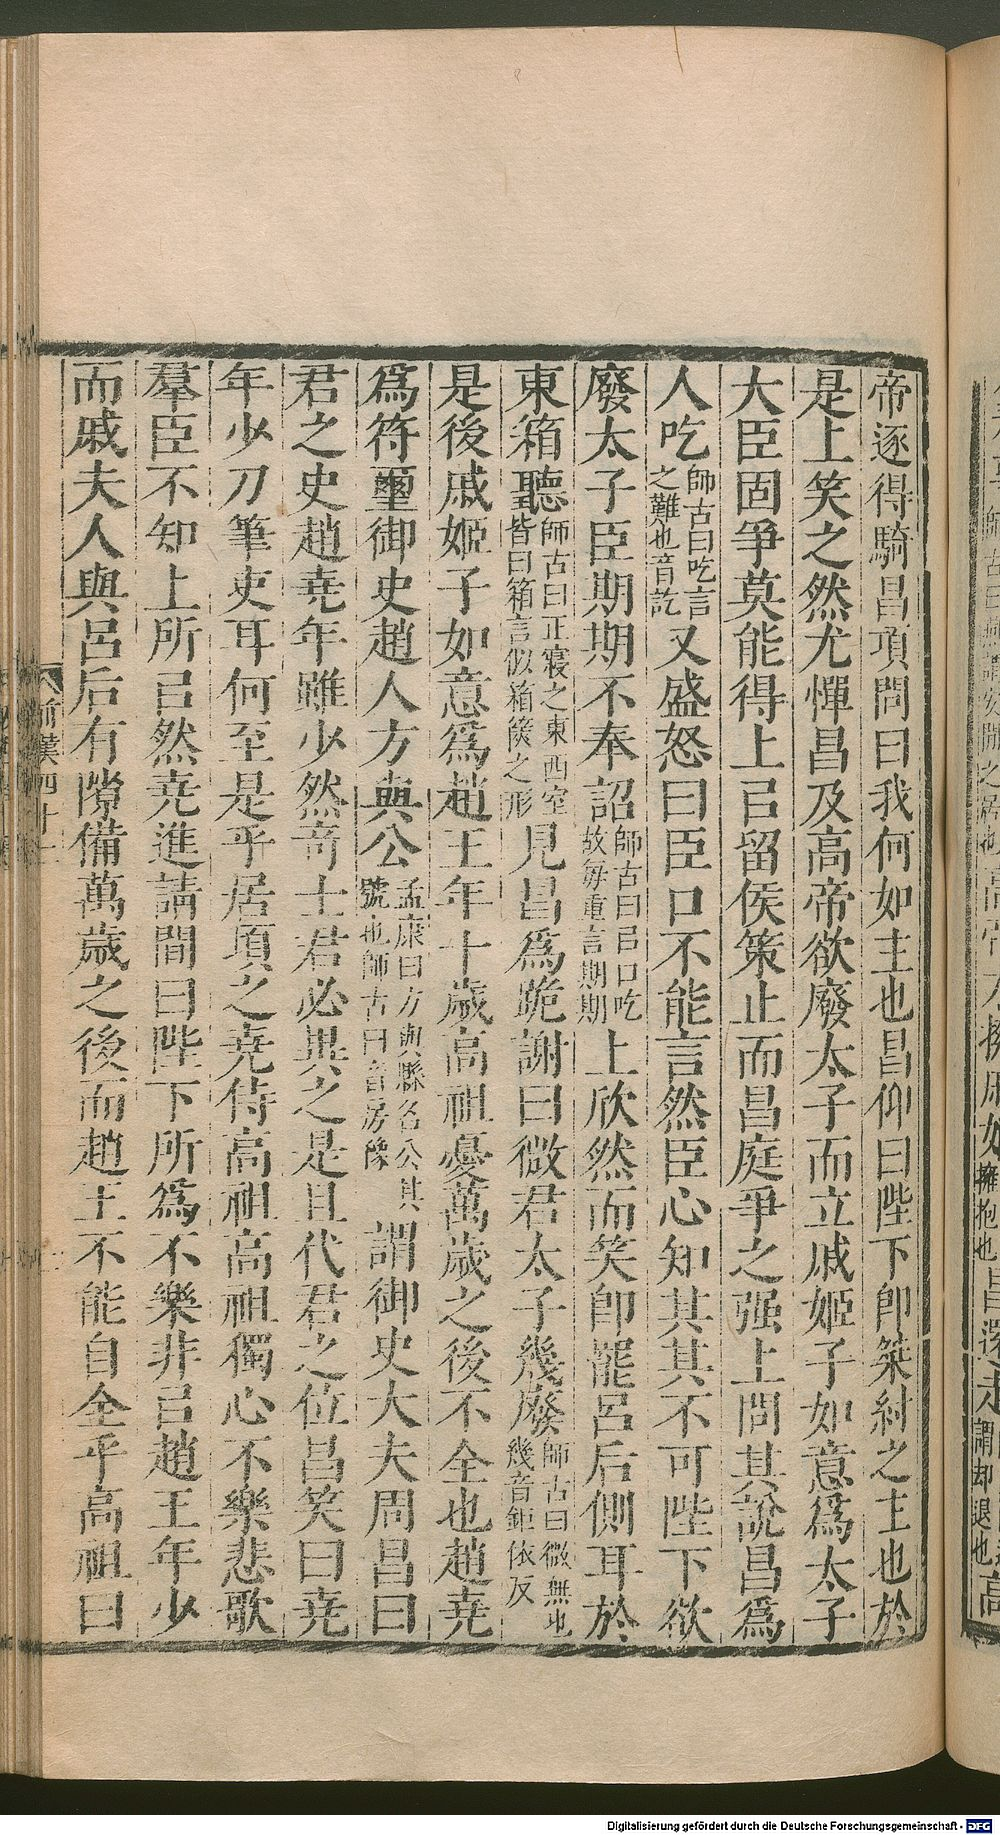 帝逐得騎昌項問曰我何如主也昌仰曰陛下卽桀紂之主也於
是上笑之然尤憚昌及高帝欲廢太子而立戚姬子如意爲太子
大臣固爭莫能得上㠯留侯策止而昌庭爭之强上問其說昌爲
人吃師古曰吃言之難也音訖又盛怒曰臣口不能言然臣心知其其不可陛下欲
廢太子臣期期不奉詔師古曰㠯口吃故每重言期期上欣然而笑卽罷呂后側耳於
東箱聽師古曰正寢之東西室皆曰箱言似箱篋之形見昌爲跪謝曰微君太子幾廢師古曰微無也幾音鉅依反
是後戚姬子如意爲趙王年十歲高祖憂萬歲之後不全也趙堯
爲符璽御史趙人方與公孟康曰方與縣名公其號也師古曰音房豫謂御史大夫周昌曰
君之史趙堯年雖少然奇士君必異之是且代君之位昌笑曰堯
年少刀筆吏耳何至是乎居頃之堯侍高祖高祖獨心不樂悲歌
羣臣不知上所㠯然堯進請閒曰陛下所爲不樂非㠯趙王年少
而戚夫人與呂后有隙備萬歲之後而趙王不能自全乎高祖曰
前漢四十二
Digitalisierung gefördert durch die Deutsche Forschungsgemeinschaft - DFG